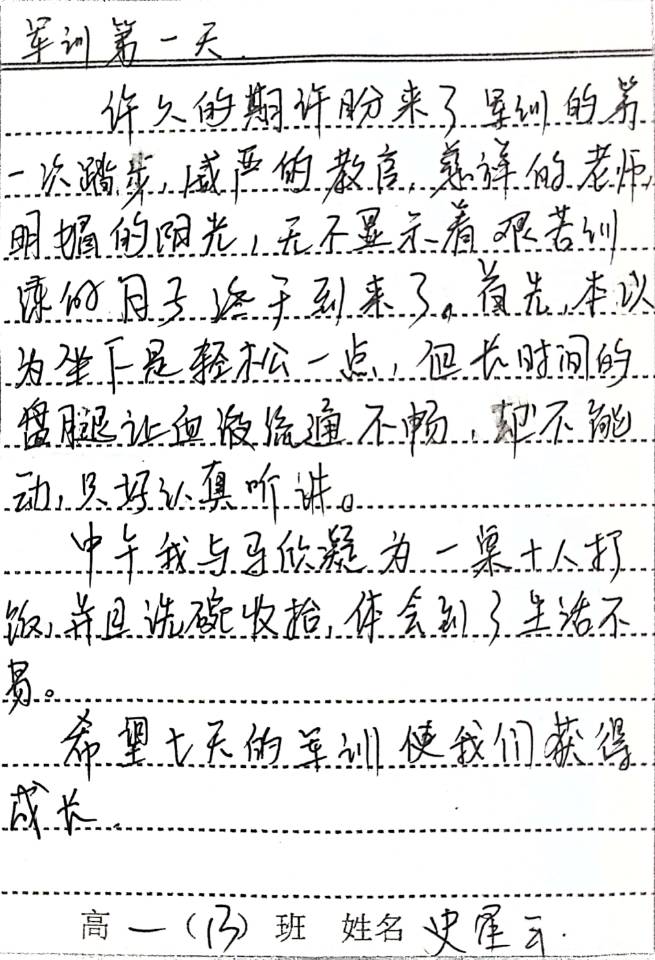 军训第一天.
许久的期许盼来了军训的第
一次踏步,威严的教官,慈祥的老师,
明媚的阳光,无不显示着艰苦训
练的日子终于到来了。首先,本以
为坐下是轻松一点,但长时间的
盘腿让血液流通不畅,却不能
动,只好认真听讲。
中午我与马欣凝为一桌十人打
饭,并且洗碗收拾,体会到了生活不
易。
希望七天的军训使我们获得
成长.
高一(13)班 姓名 史星云.